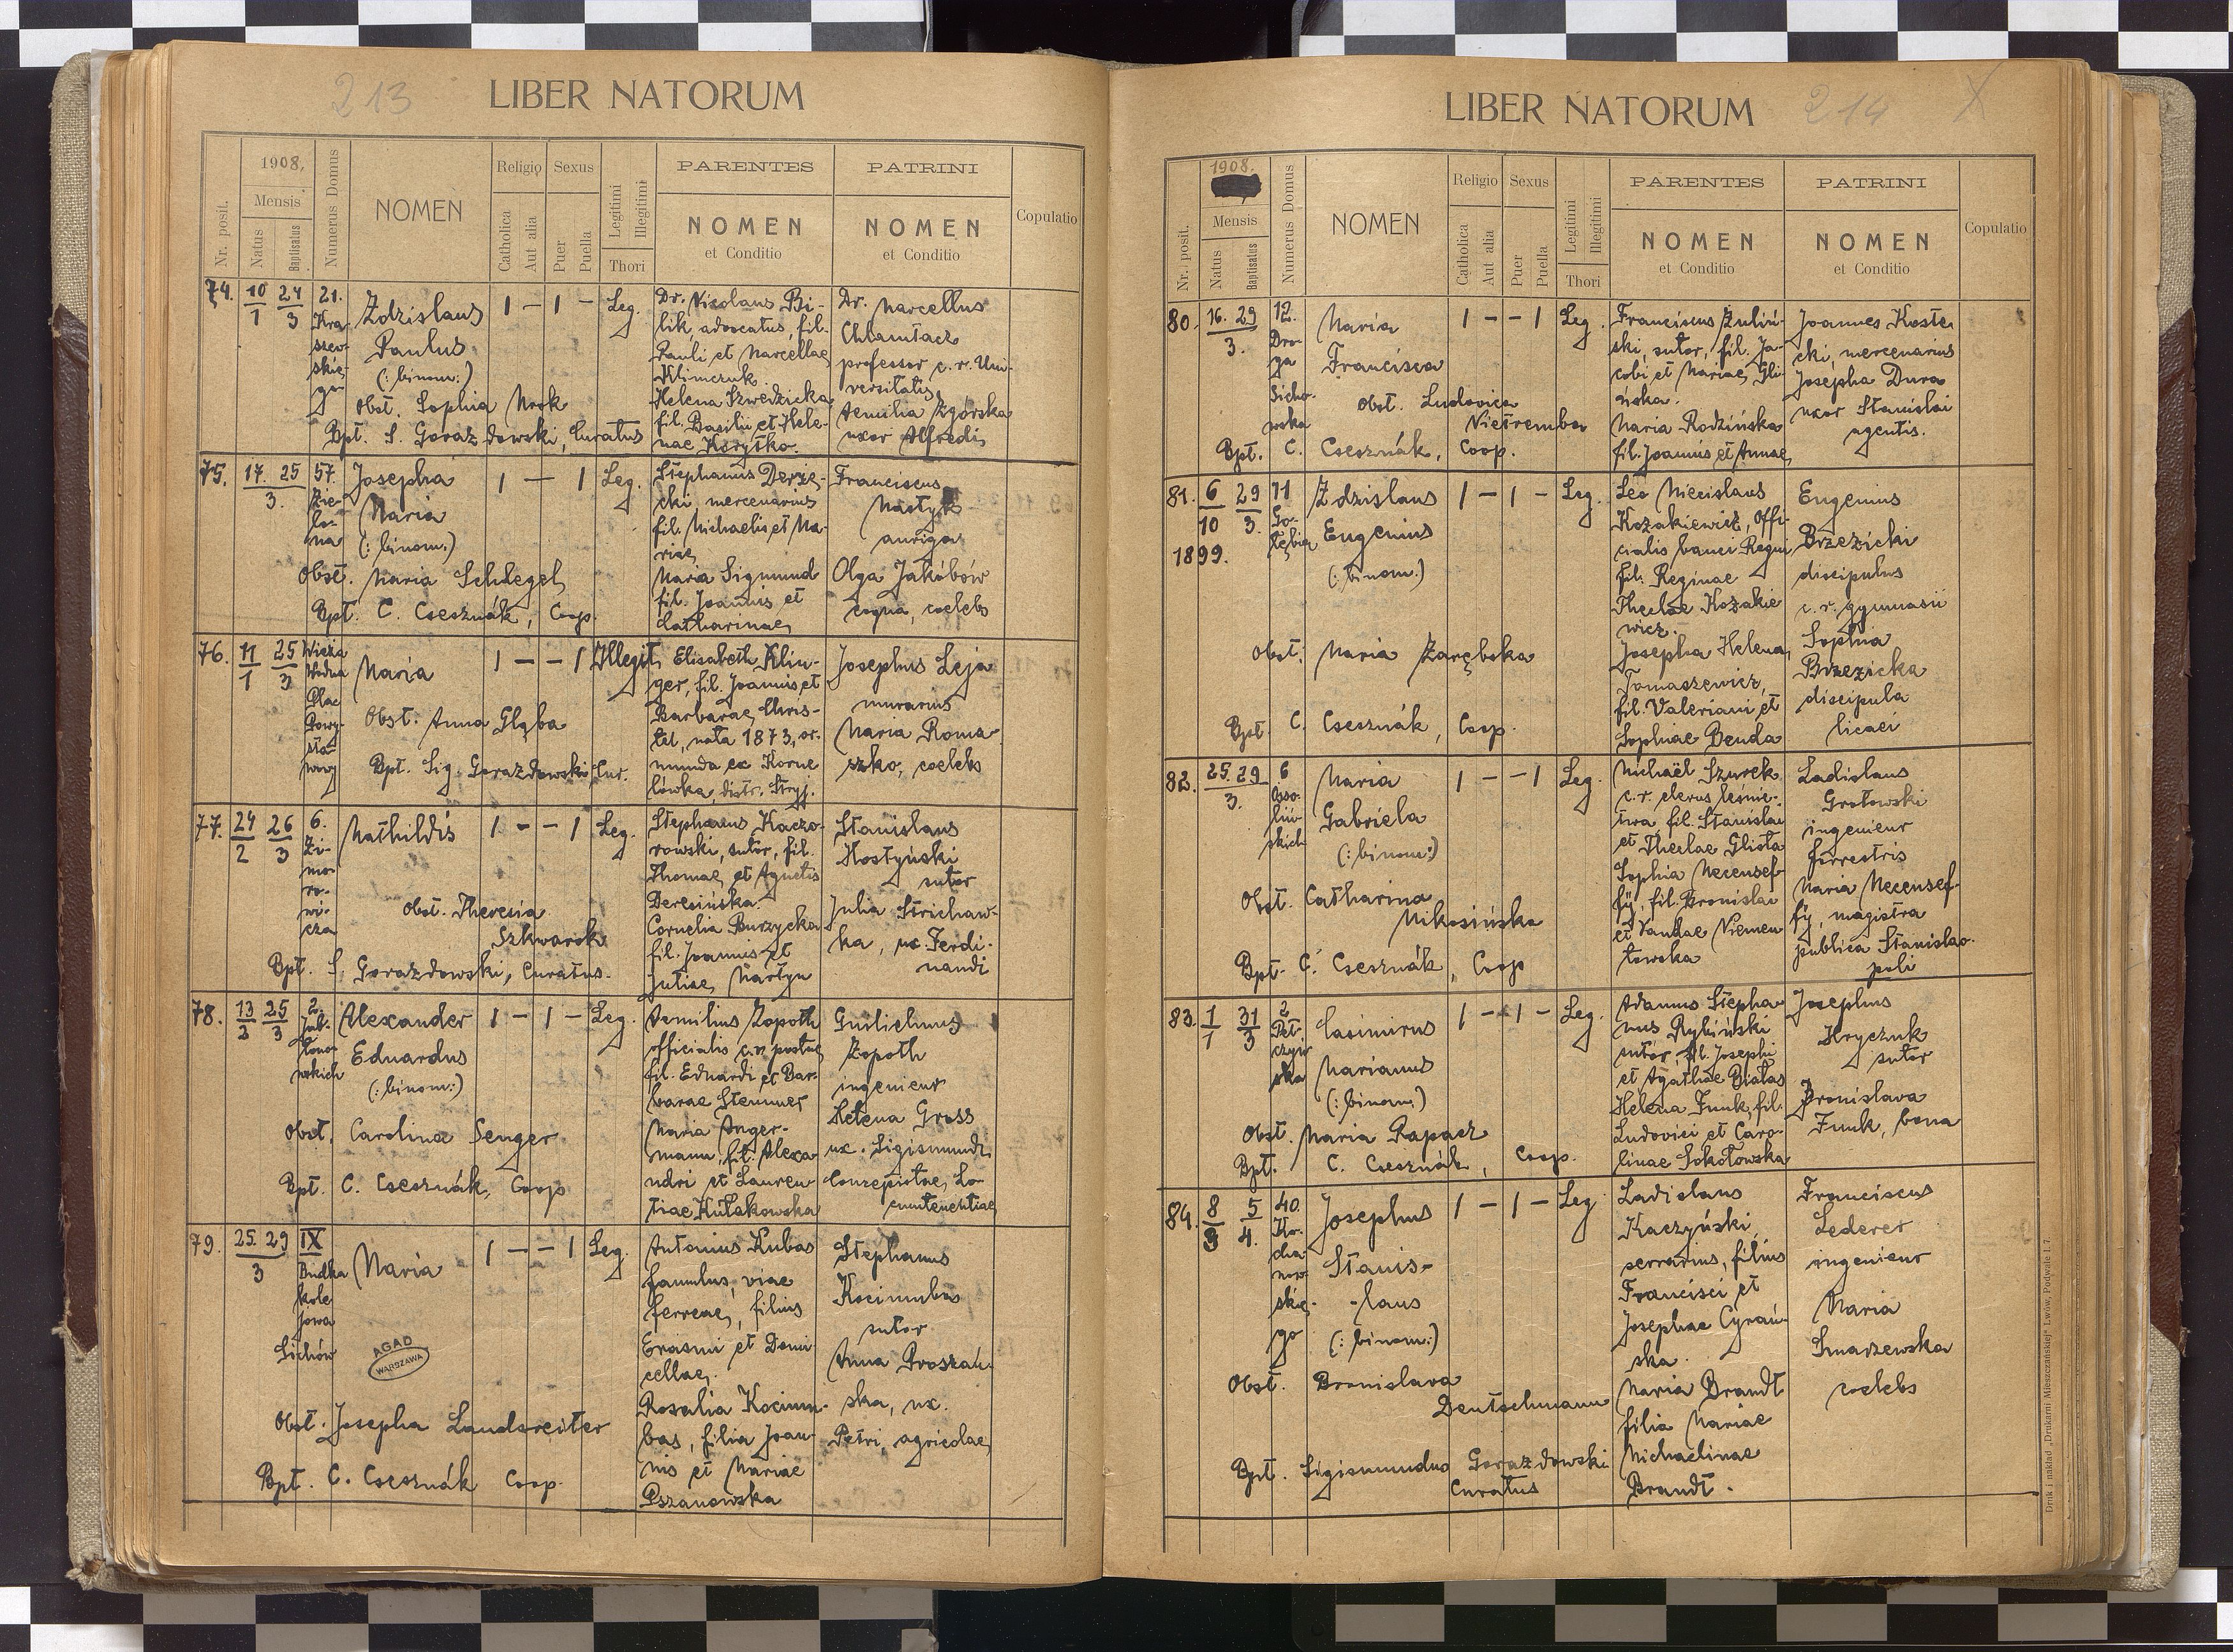 213
LIBER NATORUM
Nr. posit.
1908,
Mensis
Natus
Baptisatus
Numerus Domus
NOMEN
Religio
Catholica
Aut alia
Sexus
Puer
Puella
Legitimi
Illegitimi
Thori
PARENTES
NOMEN
et Conditio
PATRINI
NOMEN
et Conditio
Copulatio
74.
10 24
1 3
21.
Kra-
szew-
skie-
go
Zdzislaus
Paulus
(: binom :)
Obst. Sophia Mrok
Bpt. S. Gorazdowski, Curatus
1 — 1 —
Leg.
Dr. Nicolaus Bi-
lik, advocatus, fil.
Pauli et Marcellae
Klimczuk.
Helena Szwedzicka
fil. Basilii et Hele-
nae Korytko.
Dr. Marcellus
Chlamtacz
professor c. r. Uni-
versitatis
Aemilia Zgórska
uxor Alfredi
75.
17. 25
3.
57.
Zie-
lo-
na
Josepha
Maria
(: binom.)
Obst. Maria Schlegel
Bpt. C. Csesznák, Coop.
1 — — 1
Leg.
Stephanus Derże-
cki, mercenarius
fil. Michaelis et Ma-
riae
Maria Sigmund
fil. Joannis et
Catharinae
Franciscus
Mastyk
auriga
Olga Jakóbów
coqua, coelebs
76.
11 25
1 3
Wieża
Wodna
Plac
Powy-
sta-
wowy
Maria
Obst. Anna Głąba
Bpt. Sig. Gorazdowski, Cur.
1 — — 1
Illegit.
Elisabeth Klin-
ger, fil. Joannis et
Barbarae Chris-
tel, nata 1873, or-
iunda ex Korne
lówka, distr. Stryj.
Josephus Leja
murarius
Maria Roma-
szko, coelebs
77.
24 26
2 3
6.
Zi-
mo-
ro-
wi-
cza
Mathildis
Obst. Theresia
Szkwarok
Bpt. S. Gorazdowski, Curatus.
1 — — 1
Leg.
Stephanus Kaczo-
rowski, sutor, fil.
Thomae et Agnetis
Deresińska.
Cornelia Burzycka
fil. Joannis et
Juliae Martyn
Stanislaus
Hostyński
sutor
Julia Strichaw-
ka, ux. Ferdi-
nandi
78.
13 25
2 3
2.
Jabło-
now-
skich
Alexander
Eduardus
(: binom :)
Obst. Carolina Senger
Bpt. C. Csesznák, Coop
1 — 1 —
Leg.
Aemilius Zopoth
officialis c. r. postae
fil. Eduardi et Bar-
barae Stemmer
Maria Anger-
mann, fil. Alexa-
ndri et Lauren-
tiae Kułakowska
Guilielmus
Zopoth
ingenieur
Helena Gross
ux. Sigismundi
79.
25. 29
3
IX
Budka
kole
jowa
Sichów
Maria
AGAD
WARSZAWA
Obst. Josepha Landsreiter
Bpt. C. Csesznák Coop.
1 — — 1
Leg.
Antonius Kubas
famulus viae
ferreae, filius
Erasmi et Domi-
cellae.
Rosalia Kocium-
bas, filia Joan-
nis et Mariae
Pszanowska
Stephanus
Kociumbas
sutor
Anna Proszań-
ska, ux.
Petri, agricolae
LIBER NATORUM
214 X
Nr. posit.
1908.
Mensis
Natus
Baptisatus
Numerus Domus
NOMEN
Religio
Catholica
Aut alia
Sexus
Puer
Puella
Legitimi
Illegitimi
Thori
PARENTES
NOMEN
et Conditio
PATRINI
NOMEN
et Conditio
Copulatio
80.
16. 29
3.
12.
Dro-
ga
Sicho-
wska
Maria
Francisca
Obst. Ludovica
Nietremba
Bpt. C. Csesznák, Coop.
1 — — 1
Leg.
Franciscus Żuliń-
ski, sutor, fil. Ja-
cobi et Mariae Gli-
ńska.
Maria Rodzińska
fil. Joannis et Annae
Joannes Koste
cki, mercenarius
Josepha Dura
uxor Stanislai
agentis.
81.
6 29
10 3.
1899.
11
Go-
łębia
Zdzislaus
Eugenius
(: binom :)
Obst. Maria Zarębska
Bpt C. Csesznák, Coop.
1 — 1 —
Leg.
Leo Miecislaus
Kozakiewicz, offi-
cialis banci Regni
fil. Reginae
Theclae Kozakie
wicz.
Josepha Helena
Tomaszewicz,
fil. Valeriani et
Sophiae Benda
Eugenius
Brzezicki
discipulus
c. r. gymnasii
Sophia
Brzezicka
discipula
licaei
82.
25. 29
3.
6
Osso-
liń-
skich
Maria
Gabriela
(: binom :)
Obst. Catharina
Mikosińska
Bpt. C. Csesznák, Coop
1 — — 1
Leg.
Michaël Szurek
c. r. elevus leśnic-
twa, fil. Stanislai
et Theclae Glista
Sophia Mecensef-
fy, fil. Bronislai
et Vandae Niemen
towska
Ladislaus
Grotowski
ingenieur
forrestris
Maria Mecensef-
fy, magistra
publica Stanislao-
poli
83.
1 31
1 3
2
Peł-
czyń
ska
Casimirus
Marianus
(: binom :)
Obst. Maria Rapacz
Bpt. C. Csesznák, Coop.
1 — 1 —
Leg.
Adamus Stepha-
nus Rybiński
sutor, fil. Josephi
et Agathae Białas
Helena Funk, fil.
Ludovici et Caro-
linae Sokołowska
Josephus
Kryczuk
sutor
Bronislava
Funk, bona
84.
8 5
3 4.
40.
Ko-
cha-
now-
skie-
go
Josephus
Stanis-
-laus
(: binom :)
Obst. Bronislava
Deutschmann
Bpt. Sigismundus Gorazdowski
Curatus
1 — 1 —
Leg
Ladislaus
Kaczyński
serrarius, filius
Francisci et
Josephae Cyrań-
ska.
Maria Brandt
filia Mariae
Michaelinae
Brandt.
Franciscus
Lederer
ingenieur
Maria
Smarzewska
coelebs
Druk i nakład „Drukarni Mieszczańskiej" Lwów, Podwale l. 7.